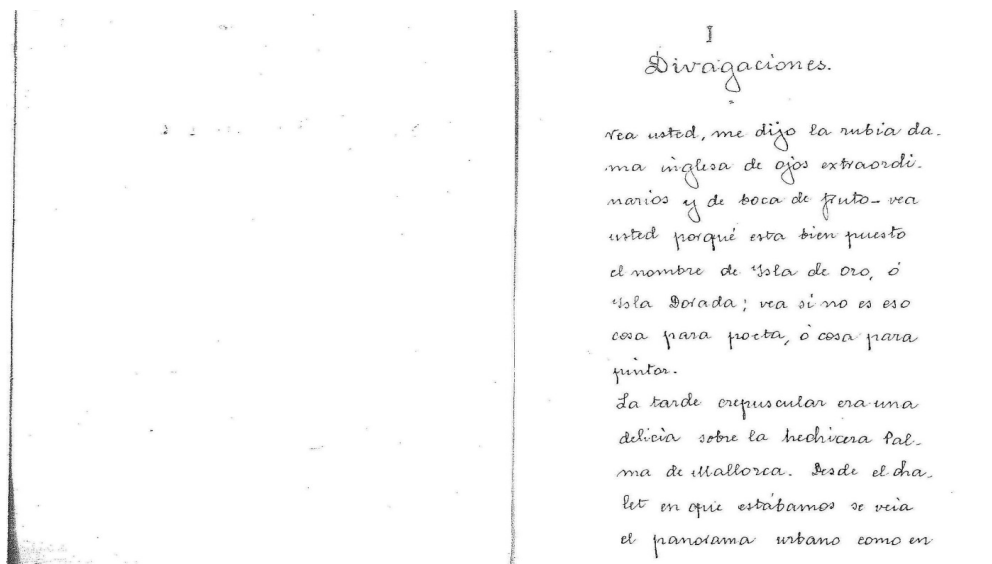 I
Divagaciones.
Vea usted, me dijo la rubia da-
ma inglesa de ojos extraordi-
narios y de boca de fruto - vea
usted porqué esta bien puesto
el nombre de Isla de oro, ó
Isla Dorada; vea si no es eso
cosa para poeta, ó cosa para
pintor.
La tarde crepuscular era una
delicia sobre la hechicera Pal-
ma de Mallorca. Desde el cha-
let en que estábamos se veia
el panorama urbano como en